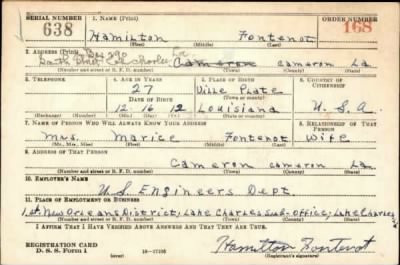 SERIAL NUMBER 1. NAME (Print) ORDER NUMBER
638 Hamilton Fontenot 168
(First) (Middle) (Last)
2. ADDRESS (Print) Box 290 La
Cameron Cameron La
(Number and street or R. F. D. number) (Town) (County) (State)
3. TELEPHONE 4. AGE IN YEARS 5. PLACE OF BIRTH 6. COUNTRY OF CITIZENSHIP
27 Ville Platte
DATE OF BIRTH (Town or county)
12 16 12 Louisiana U. S. A.
(Exchange) (Number) (Mo.) (Day) (Yr.) (State or country)
7. NAME OF PERSON WHO WILL ALWAYS KNOW YOUR ADDRESS 8. RELATIONSHIP OF THAT PERSON
Mrs. Marice Fontenot Wife
(Mr., Mrs., Miss) (First) (Middle) (Last)
9. ADDRESS OF THAT PERSON
Cameron Cameron La
(Number and street or R. F. D. number) (Town) (County) (State)
10. EMPLOYER'S NAME
U. S. Engineers Dept
11. PLACE OF EMPLOYMENT OR BUSINESS
1st New Orleans District, Lake Charles sub-Office, Lake Charles
(Number and street or R. F. D. number) (Town) (County) (State)
I AFFIRM THAT I HAVE VERIFIED ABOVE ANSWERS AND THAT THEY ARE TRUE.
REGISTRATION CARD Hamilton Fontenot
D. S. S. Form 1 (over) (Registrant's signature)